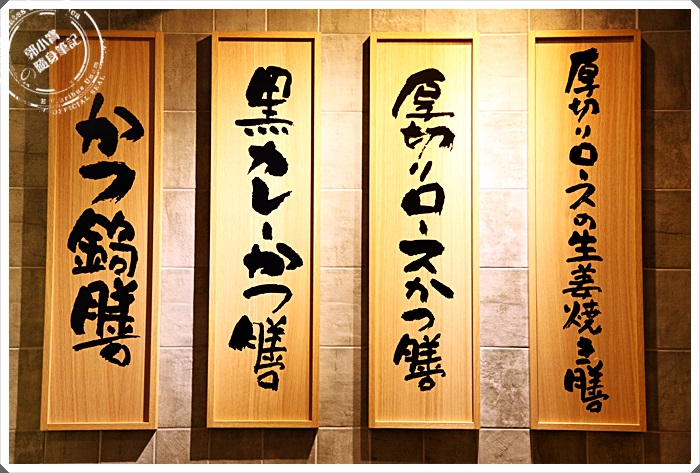 厚切りロースの生姜焼き膳
厚切りロースかつ膳
黒カレーかつ膳
かつ鍋膳
郭小寶
の隨身筆記
OFFICIAL SEAL